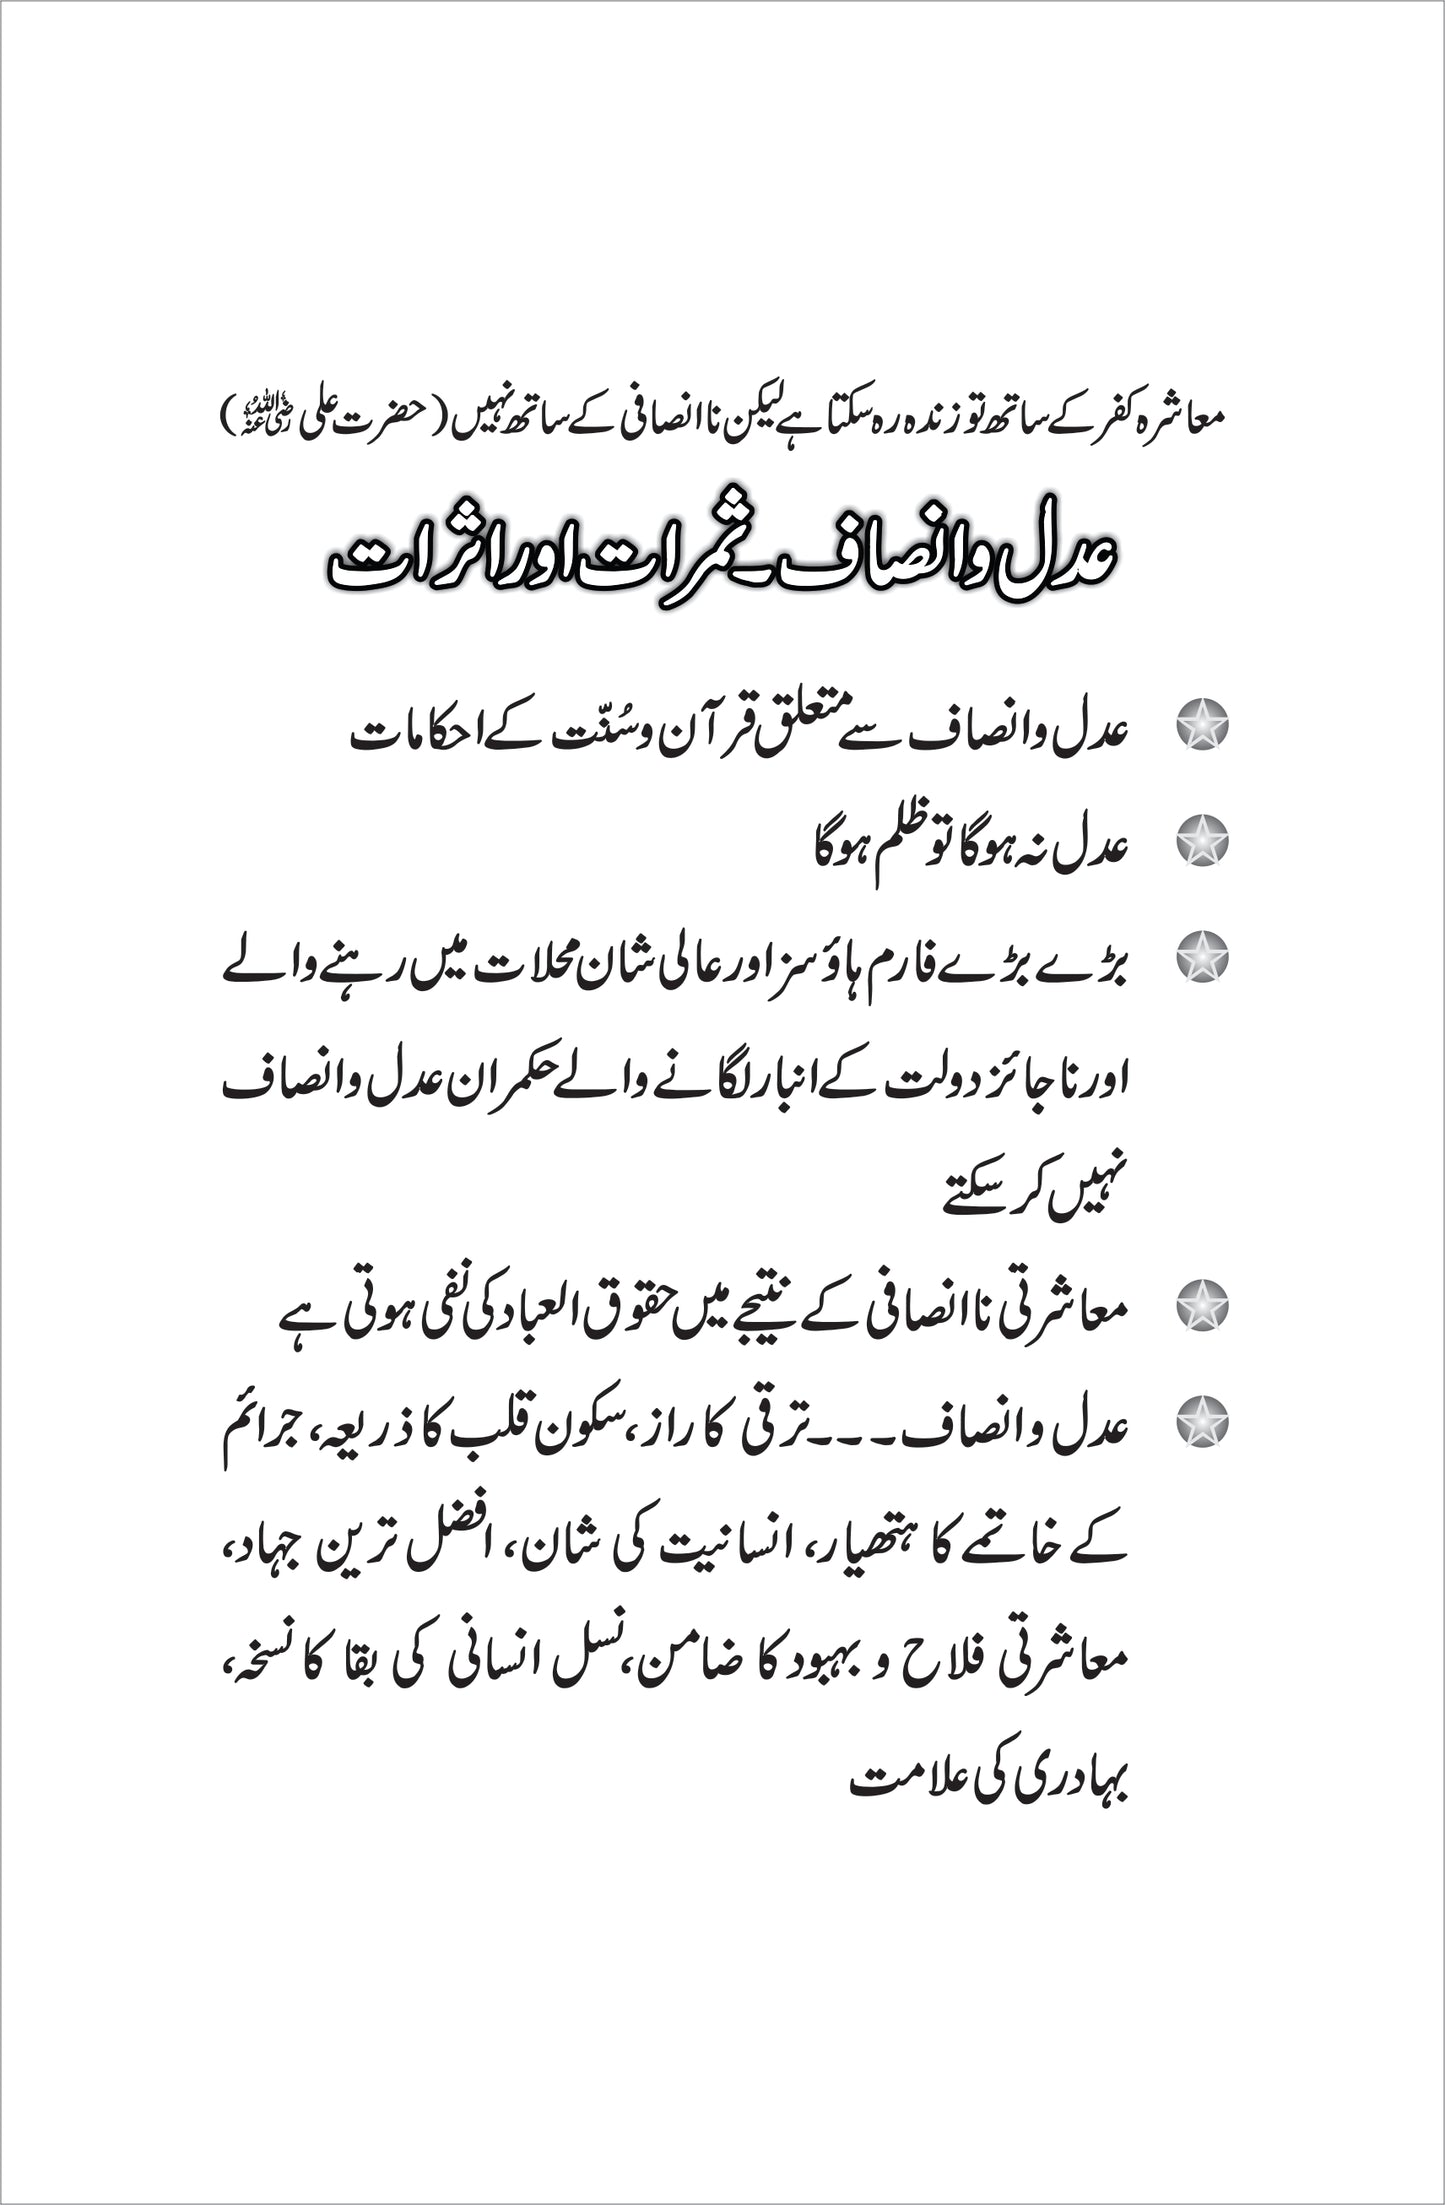 معاشرہ کفر کے ساتھ تو زندہ رہ سکتا ہے لیکن ناانصافی کے ساتھ نہیں (حضرت علی رضی اللہ عنہ)
عدل و انصاف۔ ثمرات اور اثرات
عدل و انصاف سے متعلق قرآن و سُنّت کے احکامات
عدل نہ ہوگا تو ظلم ہوگا
بڑے بڑے فارم ہاؤسز اور عالی شان محلات میں رہنے والے
اور ناجائز دولت کے انبار لگانے والے حکمران عدل و انصاف
نہیں کر سکتے
معاشرتی ناانصافی کے نتیجے میں حقوق العباد کی نفی ہوتی ہے
عدل و انصاف۔۔۔ ترقی کا راز، سکون قلب کا ذریعہ، جرائم
کے خاتمے کا ہتھیار، انسانیت کی شان، افضل ترین جہاد،
معاشرتی فلاح و بہبود کا ضامن، نسل انسانی کی بقا کا نسخہ،
بہادری کی علامت